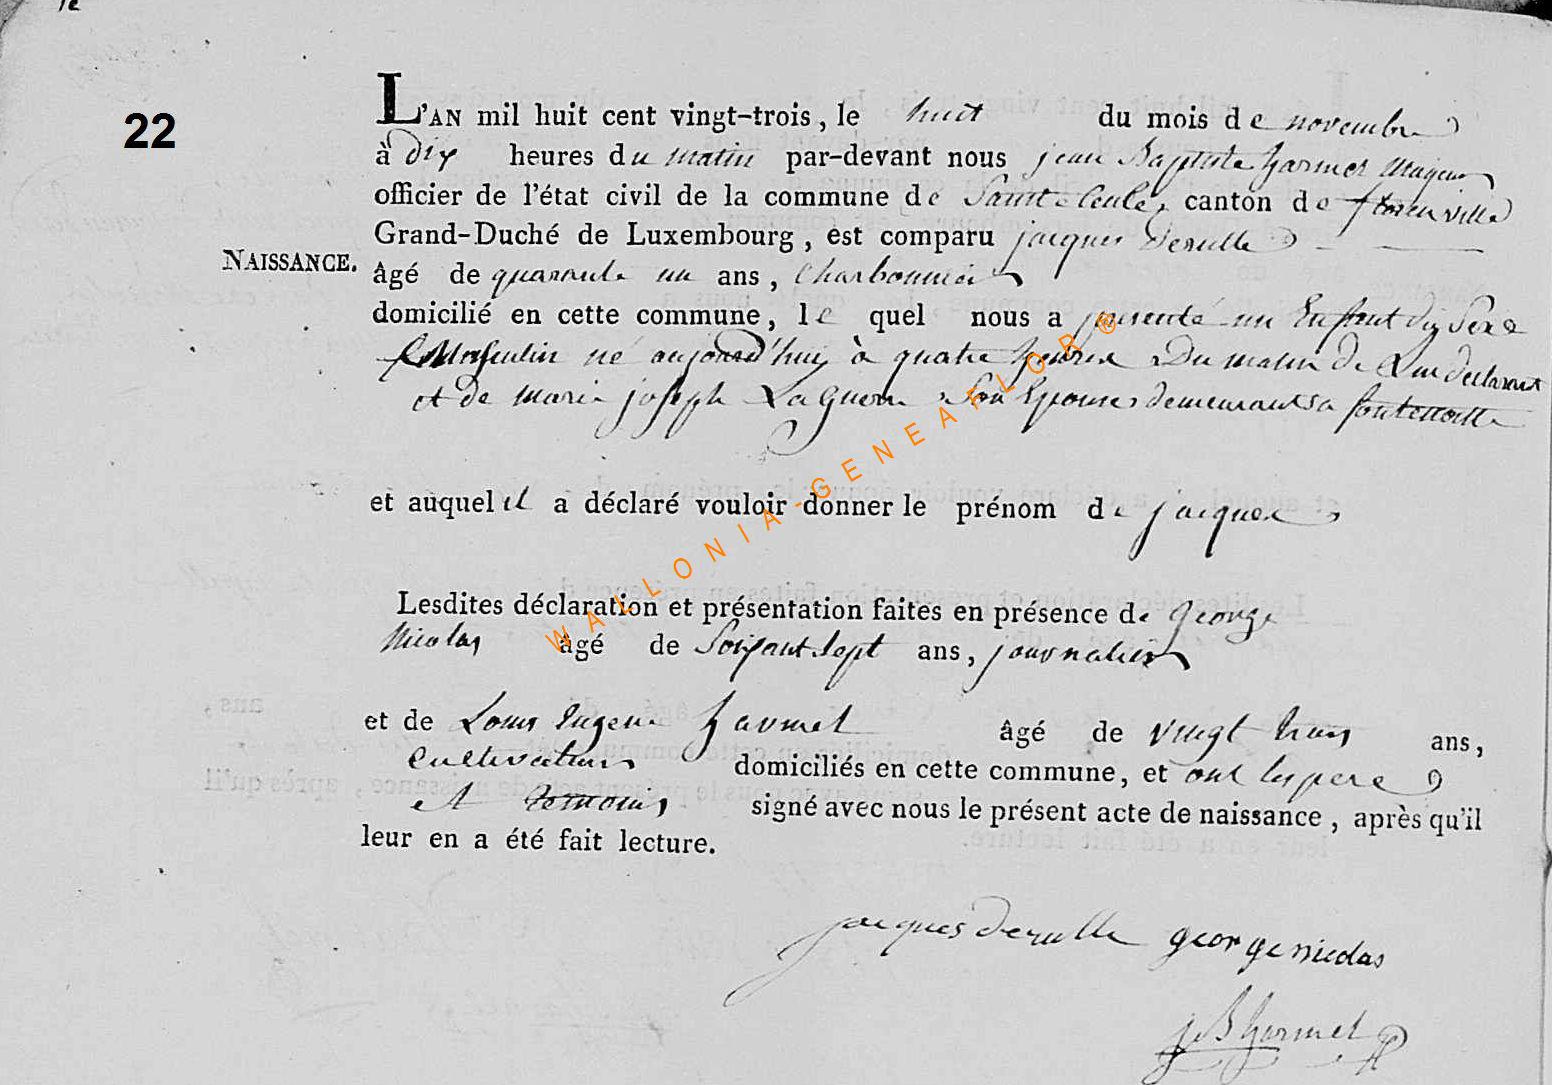 22
L'AN mil huit cent vingt-trois, le huit du mois de novembre
à dix heures du matin par-devant nous jean Baptiste harmel
officier de l'état civil de la commune de Sainte Cecile, canton de florenville
Grand-Duché de Luxembourg, est comparu jacques derulle
NAISSANCE.
âgé de quarante un ans, Charbonnier
domicilié en cette commune, le quel nous a presenté un Enfant du Sexe
Masculin né aujourd'huij à quatre heures Du matin de Lui declarant
et de marie joseph LaGuerre Son Epouse demeurants a fontenoille
et auquel il a déclaré vouloir donner le prénom de jacques
Lesdites déclaration et présentation faites en présence de george
Nicolas âgé de Soixant Sept ans, journalier
et de Louis Eugene harmel âgé de vingt trois ans,
Cultivateur domiciliés en cette commune, et ont les pere
et temoins signé avec nous le présent acte de naissance, après qu'il
leur en a été fait lecture.
jacques derulle george nicolas
j B harmel
WALLONIA-GENEAFLOR®